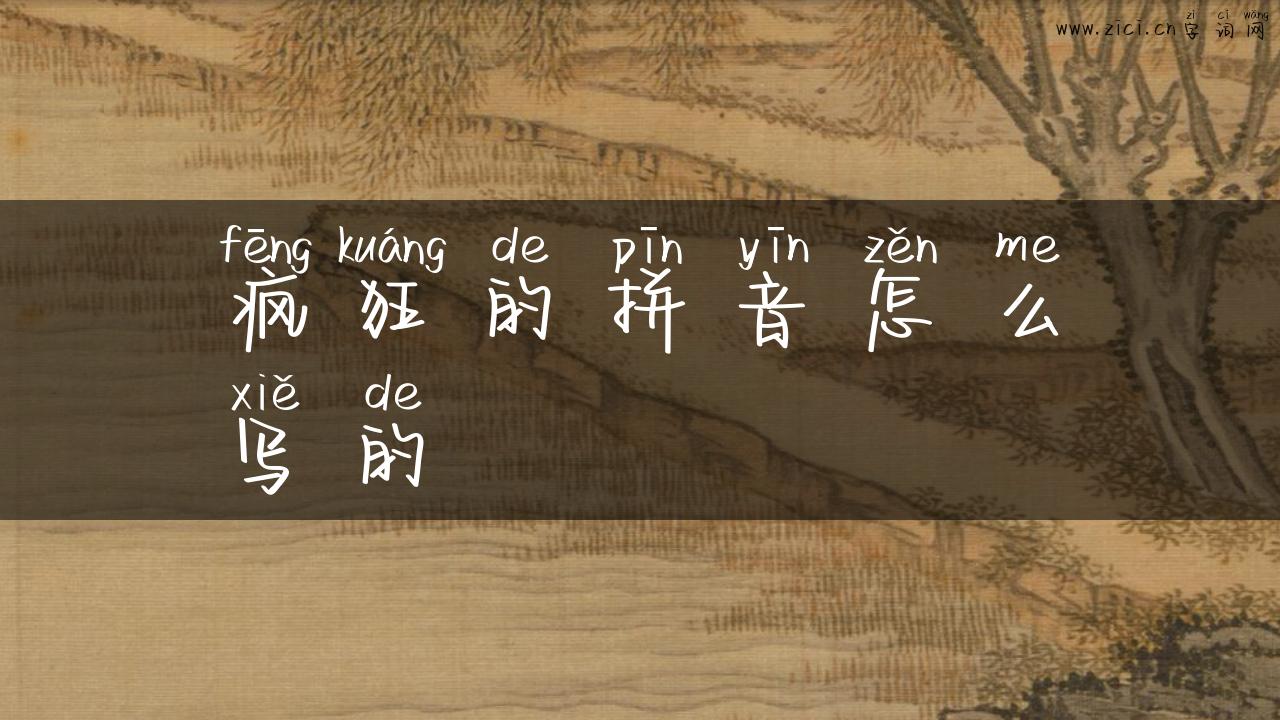 zì cí wǎng
www.zici.cn 字 词 网
fēng kuáng de pīn yīn zěn me
疯 狂 的 拼 音 怎 么
xiě de
写 的